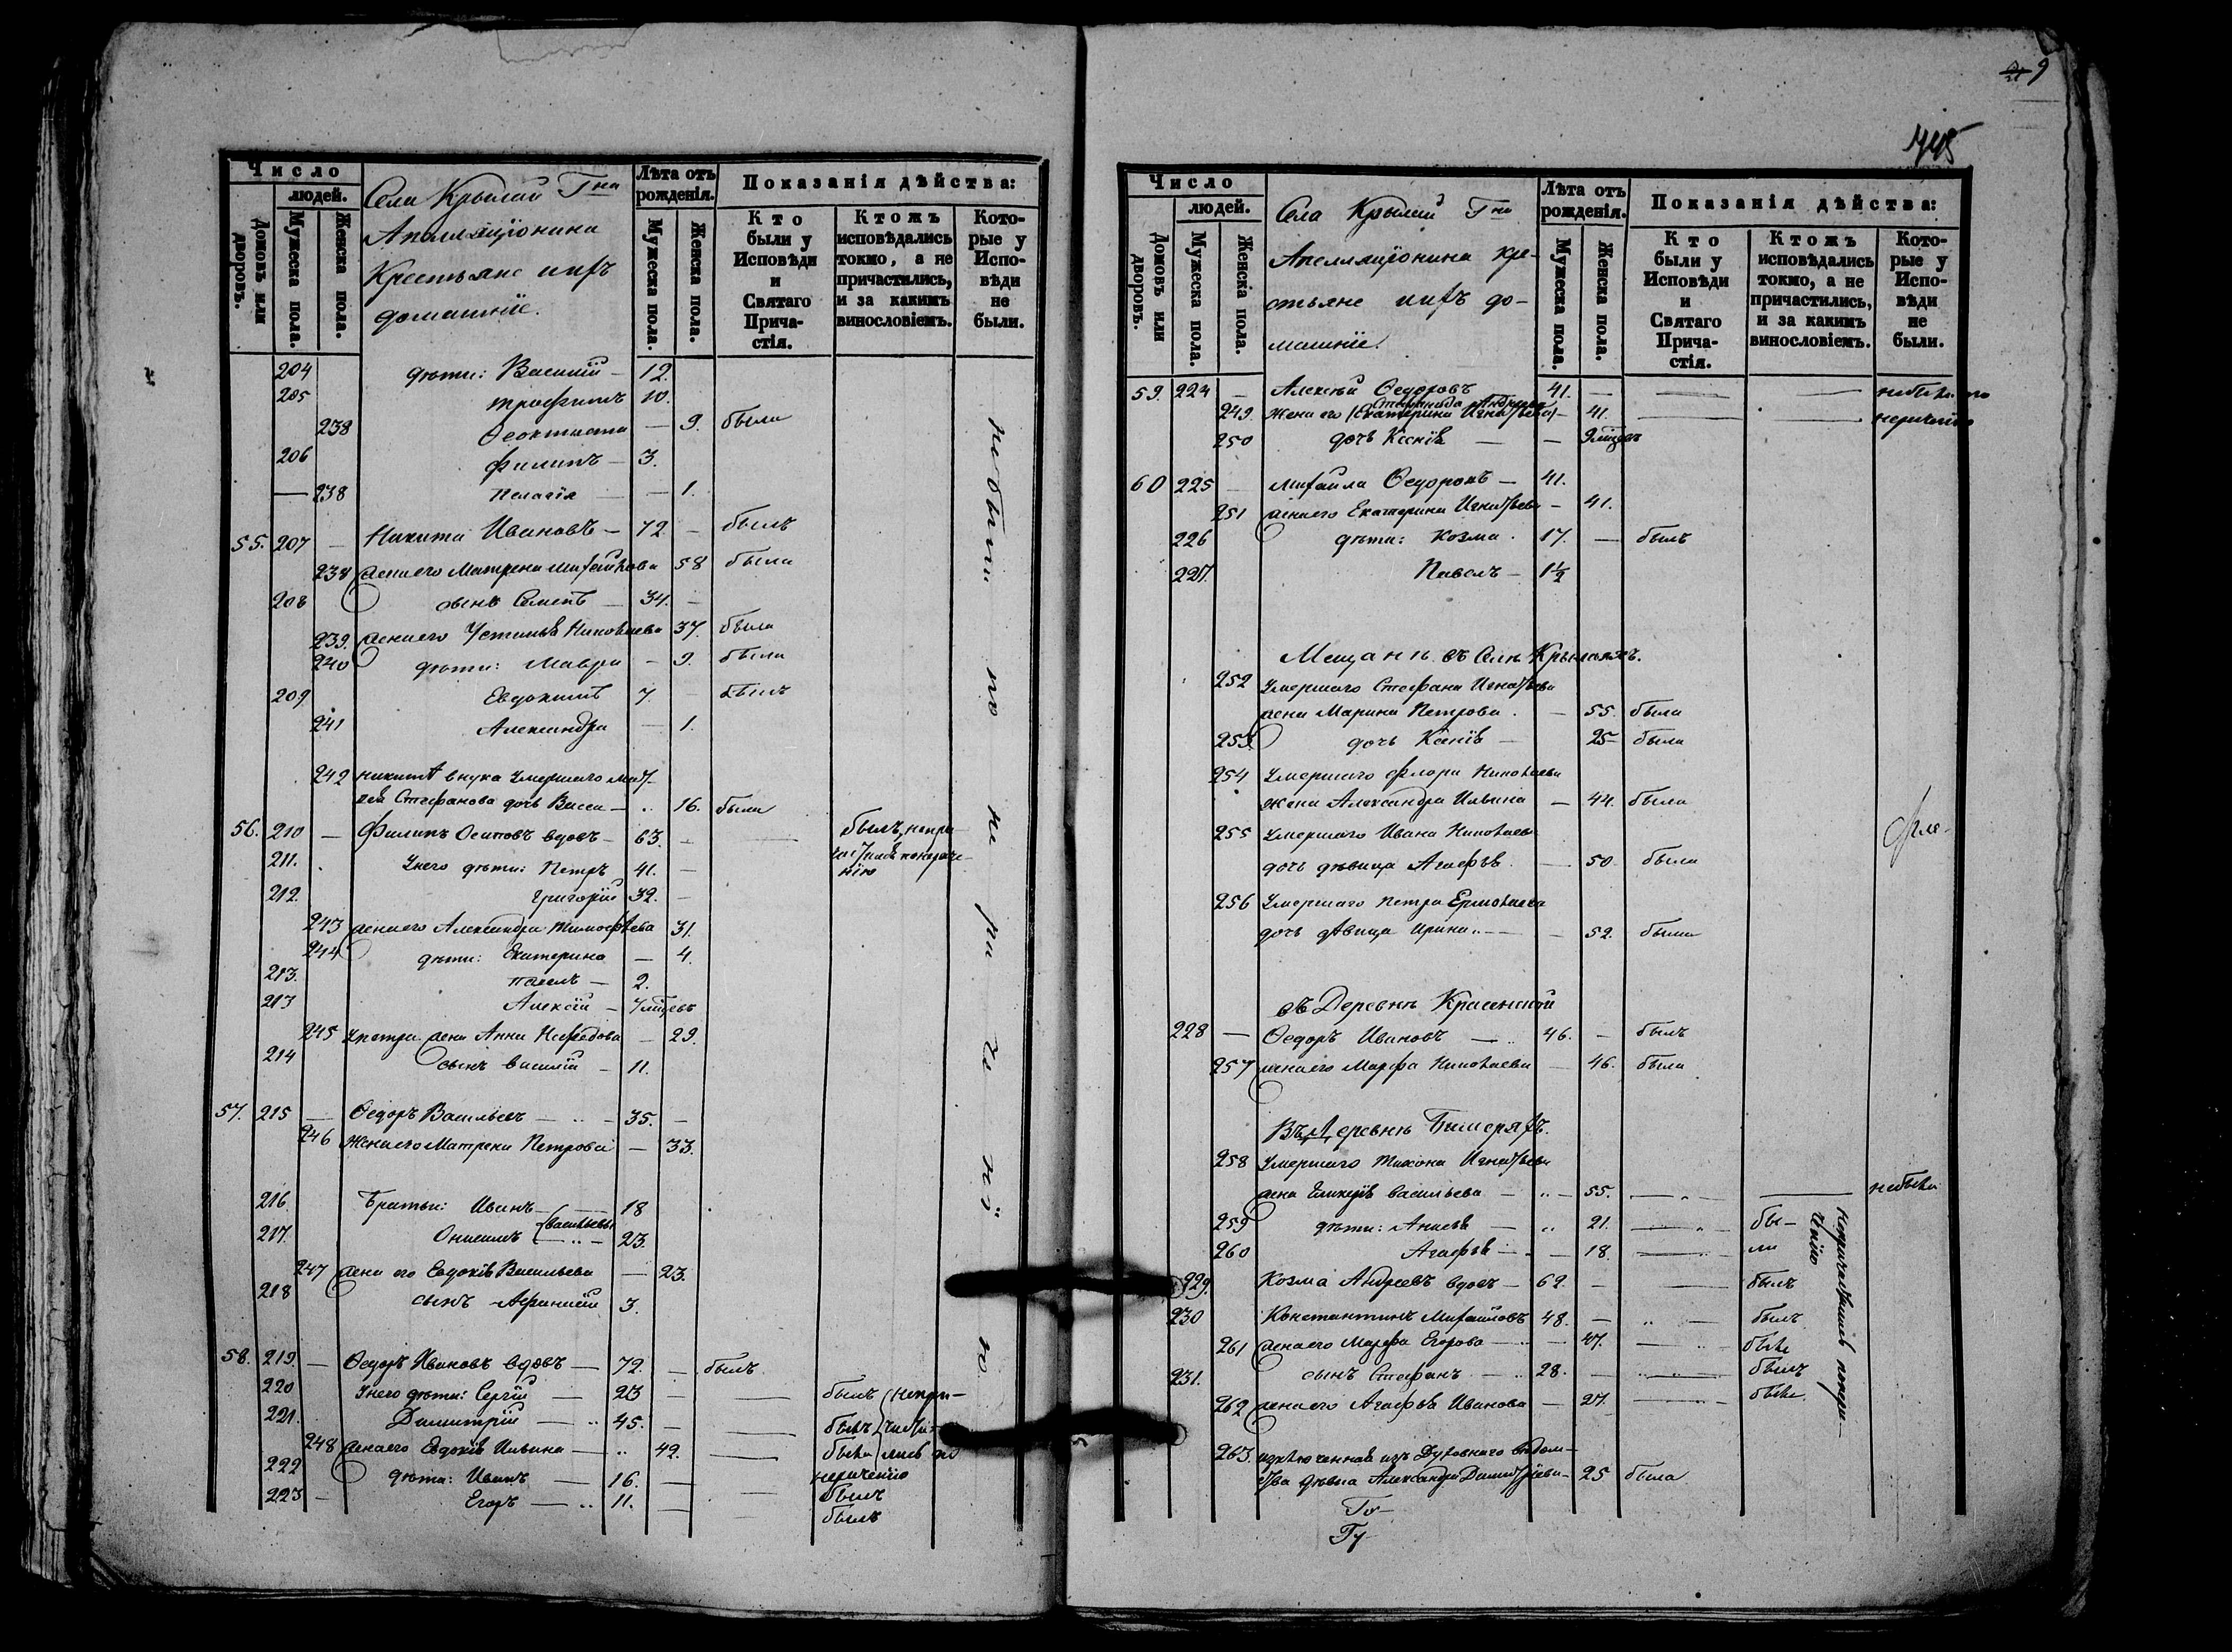 Число
людей.
Домовъ или дворовъ.
Мужеска пола.
Женска пола.
Села Крылай Гна
Апелляціонина
Крестьяне ихъ
домашніе.
Лѣта отъ рожденія.
Мужеска пола.
Женска пола.
Показанія дѣйства:
Кто были у Исповѣди и Святаго Прича-стія.
Ктожъ исповѣдались токмо, а не причастились, и за какимъ винословіемъ.
Кото-рые у Испо-вѣди не были.
204 дѣти: Василій — 12.
205 Трофимъ 10.
238 Феоктиста — 9. была
206 Филипъ — 3.
— 238 Пелагія — 1.
55. 207 — Никита Ивановъ — 72 — былъ
238 жена его Матрена Михайлова 58 была
208 сынъ Семенъ — 34. —
239. жена его Устинья Николаева 37. была
240 дѣти: Мавра — 9. была
209 Евдокимъ 7. — былъ
241 Александра — 1.
242 Никиты внука умершаго
Стефанова дочь Васса — 16. была
56. 210 — Филипъ Осиповъ вдовъ — 63. — былъ, непри
211. У него дѣти: Петръ 41. —
нію
212. Григорій 32. —
243 жена его Александра Тимофѣева 31.
244 дѣти: Екатерина — 4.
213. Павелъ — 2.
213 Алексій — 7 мцевъ
245 У Петра жена Анна Нефедова — 29.
214 сынъ Василій — 11.
57. 215 — Ѳедоръ Васильевъ — 35. —
246 Жена его Матрена Петрова — 33.
216. Братья: Иванъ — 18
Васильевы
217. Онисимъ — 23.
247 жена его Евдокія Васильева — 23.
218 сынъ Афанасій 3.
58. 219. — Ѳедоръ Ивановъ вдовъ — 72. — былъ
220 У него дѣти: Сергій — 23 — былъ непри-
221. Димитрій — 45. — былъ
248 жена его Евдокія Ильина — 42. была
нерачению
222 дѣти: Иванъ — 16. — былъ
223 — Егоръ — 11. — былъ
9
Число
людей.
Домовъ или дворовъ.
Мужеска пола.
Женска пола.
Села Крылай Гна
Апелляціонина кре-
стьяне ихъ до-
машніе.
Лѣта отъ рожденія.
Мужеска пола.
Женска пола.
Показанія дѣйства:
Кто были у Исповѣди и Святаго Прича-стія.
Ктожъ исповѣдались токмо, а не причастились, и за какимъ винословіемъ.
Кото-рые у Испо-вѣди не были.
59. 224 — Алексѣй Ѳедоровъ 41. —
249. Жена его (Екатерина Игнатьева) — 41.
250 дочь Ксенія — — 9 мцевъ
60 225 — Михайла Ѳедоровъ — 41.
251 жена его Екатерина Игнатьева — 41.
226 дѣти: Козма 17. — былъ
227. Павелъ — 1½
Мещане въ Селѣ Крылаяхъ.
252 Умершаго Стефана Игнатьева
жена Марина Петрова. — 55. была
253. дочь Ксенія — 25 была
254 Умершаго Флора Николаева
жена Александра Ильина — 44. была
255 Умершаго Ивана Николаев
дочь дѣвица Агафья. — 50. была
256 Умершаго Петра Ермолаева
дочь дѣвица Ирина — 52. была
въ Деревнѣ Красенской
228 — Ѳедоръ Ивановъ — 46. — былъ
257 жена его Марфа Николаева — 46. была
Въ Деревнѣ
258 Умершаго Тихона Игнатьева
жена Гликерія Васильева — 55. — небыла
259 дѣти: Анисья — 21. бы-
260 Агафья — — 18. ли
229. Козма Андреевъ вдовъ — 62. — былъ
230 Константинъ Михайловъ 48. — былъ
261 жена его Марфа Егорова — 47. была
231. сынъ Стефанъ — 28. — былъ
262 жена его Агафья Иванова — 27. была
263. изключенная изъ Духовнаго вѣдом-
ства дѣвка Александра Димитріева — 25 была